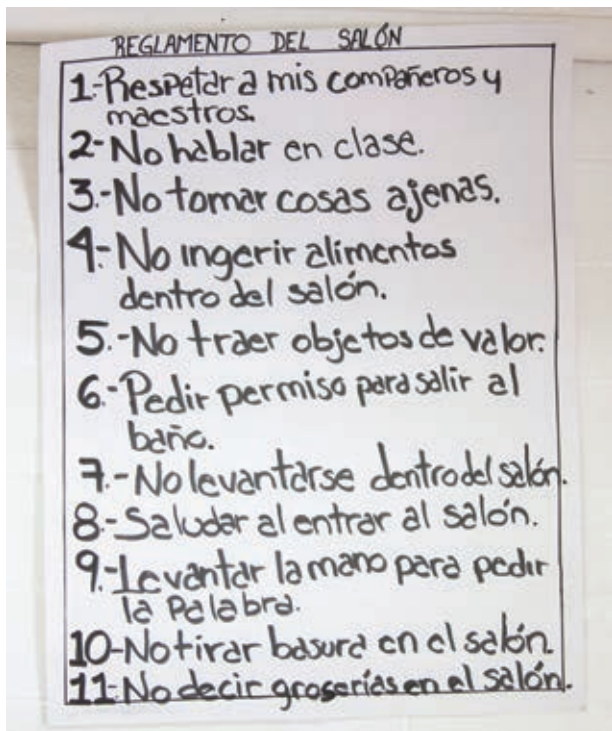 REGLAMENTO DEL SALÓN
1.-Respetar a mis compañeros y
maestros.
2-No hablar en clase.
3.-No tomar cosas ajenas.
4.-No ingerir alimentos
dentro del salón.
5.-No traer objetos de valor.
6.-Pedir permiso para salir al
baño.
7.-No levantarse dentro del salón.
8-Saludar al entrar al salón.
9.-Levantar la mano para pedir
la palabra.
10-No tirar basura en el salón.
11.-No decir groserías en el salón.